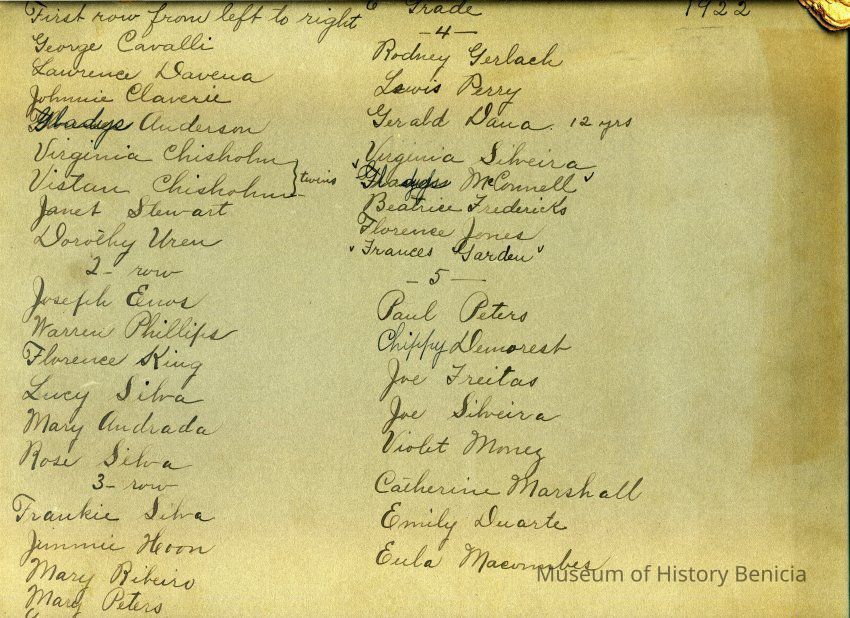 First row from left to right
George Cavalli
Lawrence Davena
Johnnie Claverie
Gladys Anderson
Virginia Chisholm
Vistan Chisholm } twins
Janet Stewart
Dorothy Uren
2 - row
Joseph Enos
Warren Phillips
Florence King
Lucy Silva
Mary Andrada
Rose Silva
3 - row
Frankie Silva
Jimmie Hoon
Mary Ribeiro
Mary Peters
6 Grade 1922
- 4 -
Rodney Gerlach
Lewis Perry
Gerald Dana. 12 yrs
Virginia Silveira
"Gladys McConnell"
Beatrice Fredericks
Florence Jones
"Frances Garden"
- 5 -
Paul Peters
Chippy Demorest
Joe Freitas
Joe Silveira
Violet Monez
Catherine Marshall
Emily Duarte
Eula Macomber
Museum of History Benicia